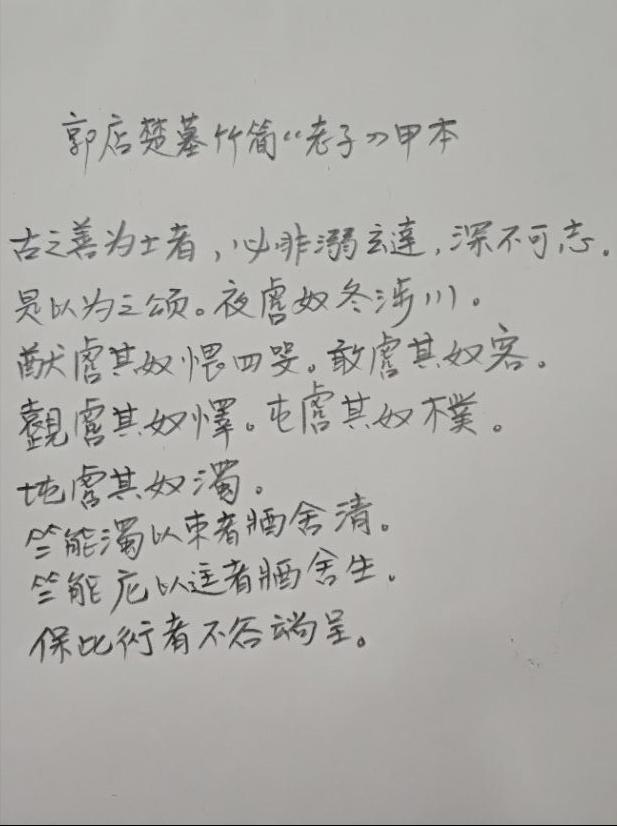 郭店楚墓竹简《老子》甲本
古之善为士者，必非溺玄達，深不可志．
是以为之颂。夜虐奴冬涉川。
猷虐其奴愄四哭。敢虐其奴客。
觀虐其奴懌。屯虐其奴樸。
坉虐其奴濁。
竺能濁以朿者牆舍清。
竺能庀以迬者牆舍生．
保此衍者不谷端呈。